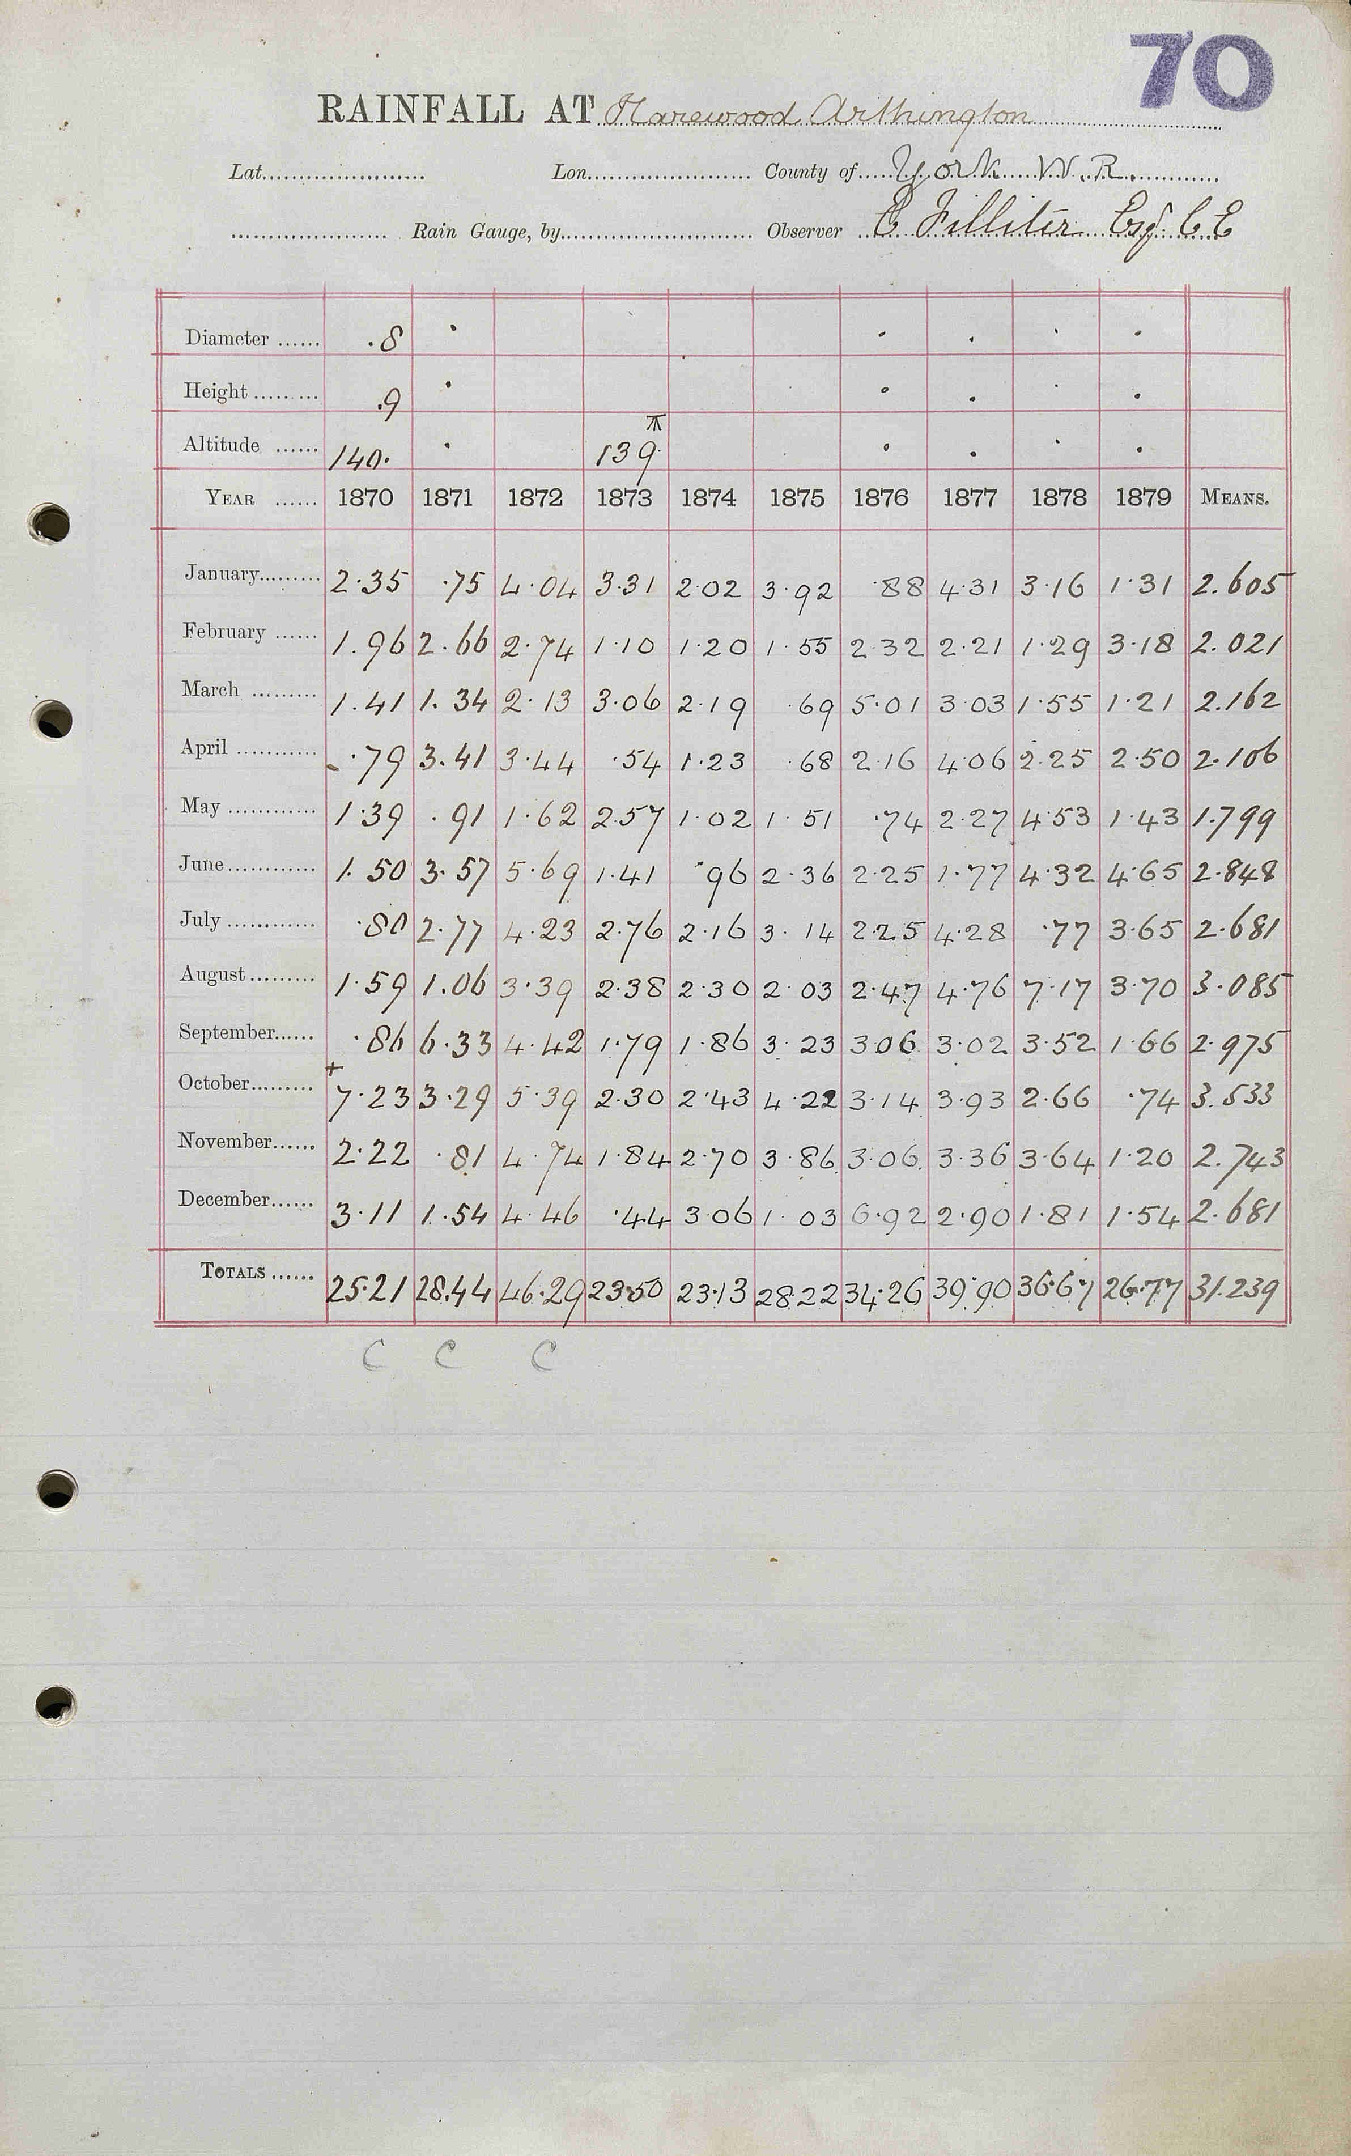 70
RAINFALL AT Harewood Arthington
Lat. Lon. County of York W.R.
Rain Gauge, by Observer E Filliter Esq. C E
Diameter ...... .8
Height ......... .9
Altitude ...... 140. 139
YEAR ...... 1870 1871 1872 1873 1874 1875 1876 1877 1878 1879 MEANS.
January......... 2.35 .75 4.04 3.31 2.02 3.92 .88 4.31 3.16 1.31 2.605
February ...... 1.96 2.66 2.74 1.10 1.20 1.55 2.32 2.21 1.29 3.18 2.021
March ......... 1.41 1.34 2.13 3.06 2.19 .69 5.01 3.03 1.55 1.21 2.162
April ........... .79 3.41 3.44 .54 1.23 .68 2.16 4.06 2.25 2.50 2.106
May ............ 1.39 .91 1.62 2.57 1.02 1.51 .74 2.27 4.53 1.43 1.799
June............ 1.50 3.57 5.69 1.41 .96 2.36 2.25 1.77 4.32 4.65 2.848
July ............ .80 2.77 4.23 2.76 2.16 3.14 2.25 4.28 .77 3.65 2.681
August......... 1.59 1.06 3.39 2.38 2.30 2.03 2.47 4.76 7.17 3.70 3.085
September...... .86 6.33 4.42 1.79 1.86 3.23 3.06 3.02 3.52 1.66 2.975
+
October......... 7.23 3.29 5.39 2.30 2.43 4.22 3.14 3.93 2.66 .74 3.533
November...... 2.22 .81 4.74 1.84 2.70 3.86 3.06 3.36 3.64 1.20 2.743
December...... 3.11 1.54 4.46 .44 3.06 1.03 6.92 2.90 1.81 1.54 2.681
TOTALS ...... 25.21 28.44 46.29 23.50 23.13 28.22 34.26 39.90 36.67 26.77 31.239
C C C